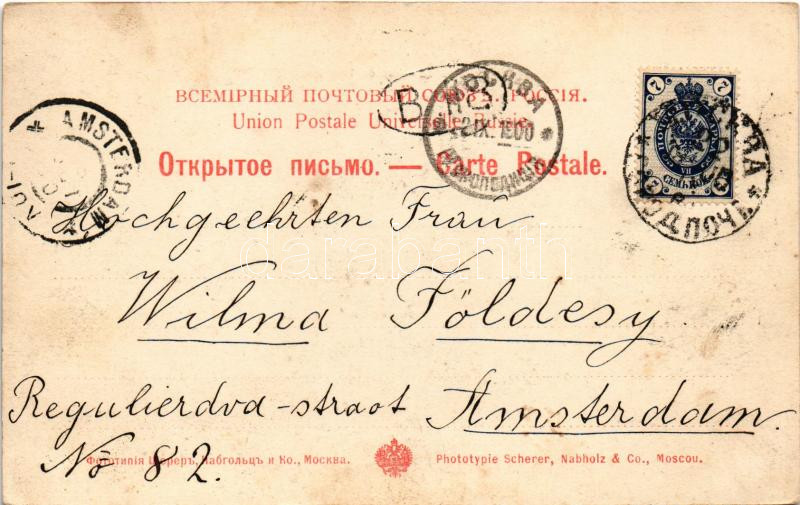 ВСЕМІРНЫЙ ПОЧТОВЫЙ СОЮЗЪ. РОССІЯ.
Union Postale Universelle. Russie.
Открытое письмо. — Carte Postale.
В 3
МОСКВА
IX. 1900
AMSTERDAM
7 7
ПОЧТОВАЯ МАРКА
VII
СЕМЬ КОП.
Hochgeehrten Frau
Wilma Földesy
Regulierdva-straat Amsterdam.
No 82.
Фототипія Шереръ, Набгольцъ и Ко., Москва.
Phototypie Scherer, Nabholz & Co., Moscou.
darabanth